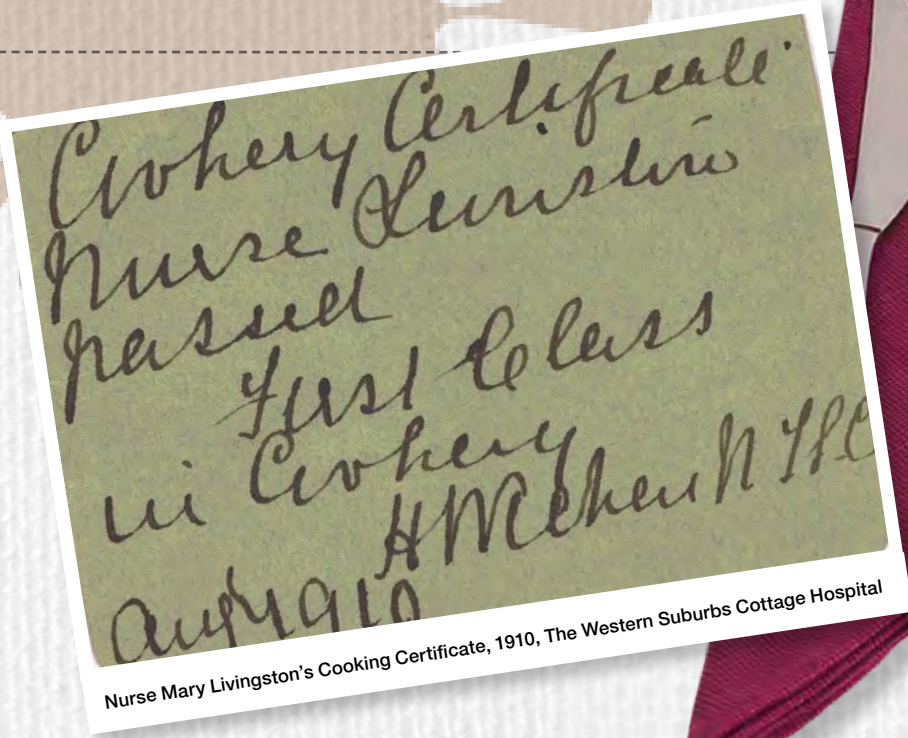 Cookery Certificate
Nurse Livingston
passed
First Class
in Cookery
Aug 1910
Nurse Mary Livingston's Cooking Certificate, 1910, The Western Suburbs Cottage Hospital